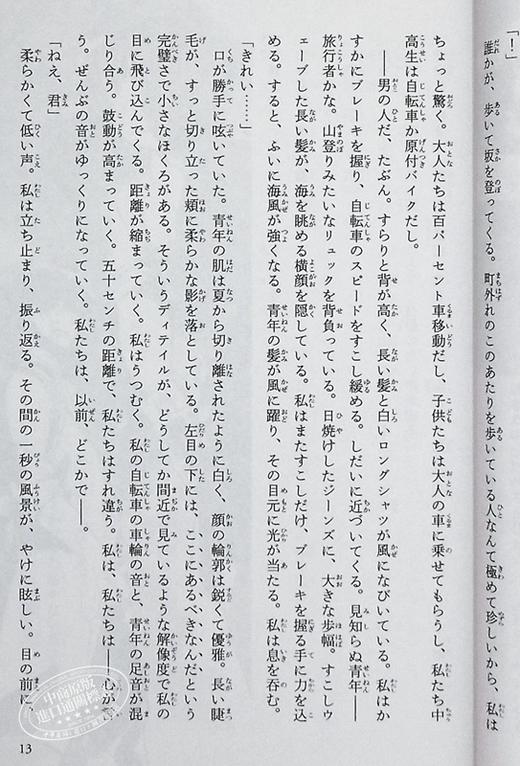 「！」
誰かが、歩いて坂を登ってくる。町外れのこのあたりを歩いている人なんて極めて珍しいから、私は
ちょっと驚く。大人たちは百パーセント車移動だし、子供たちは大人の車に乗せてもらうし、私たち中
高生は自転車か原付バイクだし。
――男の人だ、たぶん。すらりと背が高く、長い髪と白いロングシャツが風になびいている。私はか
すかにブレーキを握り、自転車のスピードをすこし緩める。しだいに近づいてくる。見知らぬ青年――
旅行者かな。山登りみたいなリュックを背負っている。日焼けしたジーンズに、大きな歩幅。すこしウ
ェーブした長い髪が、海を眺める横顔を隠している。私はまたすこしだけ、ブレーキを握る手に力を込
める。すると、ふいに海風が強くなる。青年の髪が風に躍り、その目元に光が当たる。私は息を呑む。
「きれい……」
口が勝手に呟いていた。青年の肌は夏から切り離されたように白く、顔の輪郭は鋭くて優雅。長い睫
毛が、すっと切り立った頬に柔らかな影を落としている。左目の下には、ここにあるべきなんだという
完璧さで小さなほくろがある。そういうディテイルが、どうしてか間近で見ているような解像度で私の
目に飛び込んでくる。距離が縮まっていく。私はうつむく。私の自転車の車輪の音と、青年の足音が混
じり合う。鼓動が高まっていく。五十センチの距離で、私たちはすれ違う。私は、私たちは――心が言
う。ぜんぶの音がゆっくりになっていく。私たちは、以前、どこかで――。
「ねえ、君」
柔らかくて低い声。私は立ち止まり、振り返る。その間の一秒の風景が、やけに眩しい。目の前に、
13